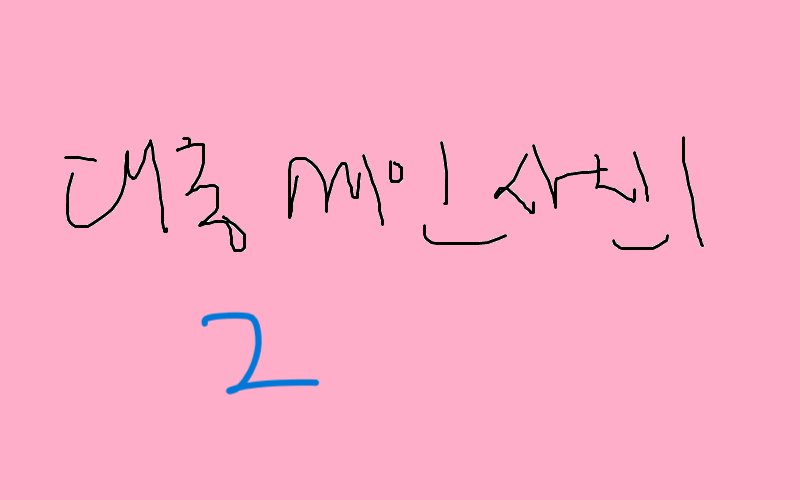 대충 메인 사진
2